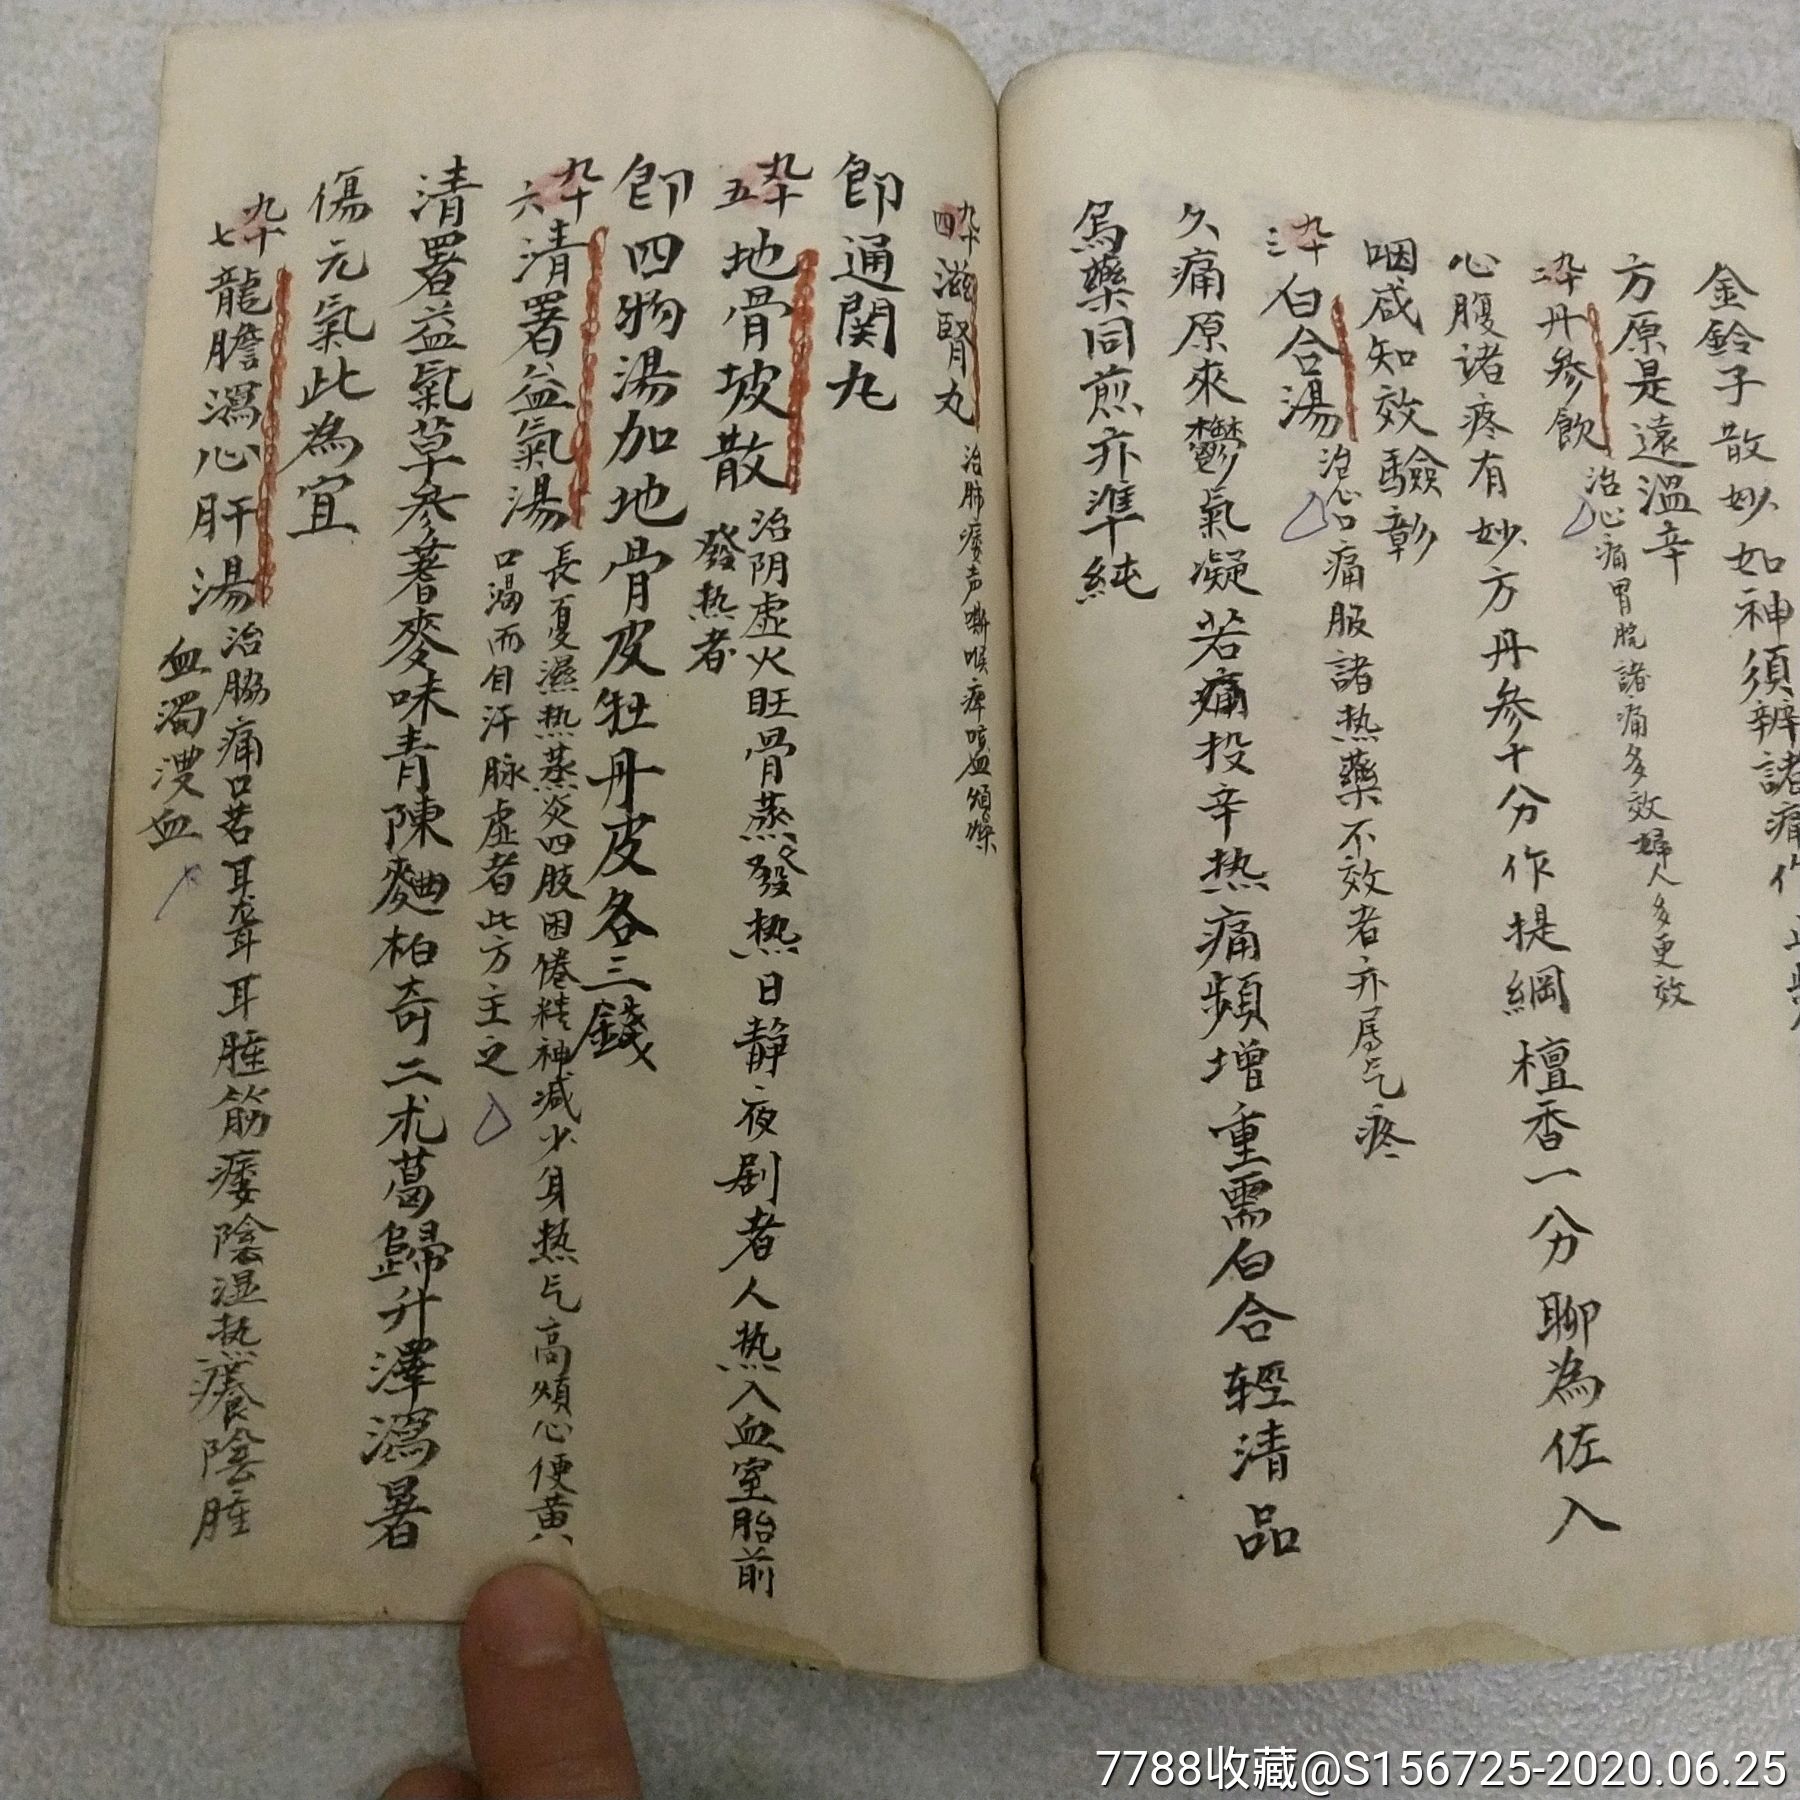 金鈴子散妙如神須辨諸痛作
方原是遠溫辛
九十二 丹參飲 治心痛胃脘諸痛多效婦人多更效
心腹諸疼有妙方丹參十分作提綱檀香一分聊為佐入
咽咸知效驗彰
九十三 白合湯 治心口痛服諸热藥不效者亦屬气疼
久痛原來鬱氣凝若痛投辛热痛頻增重需白合輕清品
烏藥同煎亦準純
九十四 滋腎丸 治肺痿声嘶喉痺咳血煩燥
即通関丸
九十五 地骨坡散 治阴虚火旺骨蒸發热日静夜剧者人热入血室胎前
發热者
即四物湯加地骨皮牡丹皮各三錢
九十六 清署益氣湯 長夏濕热蒸炎四肢困倦精神减少身热气高煩心便黄
口渴而自汗脉虚者此方主之
清署益氣草參蓍麥味青陳麯柏奇二术葛歸升澤瀉暑
傷元氣此為宜
九十七 龍膽瀉心肝湯 治脇痛口苦耳聋耳腫筋痿陰湿热癢陰腫
血濁溲血
7788收藏@S156725-2020.06.25